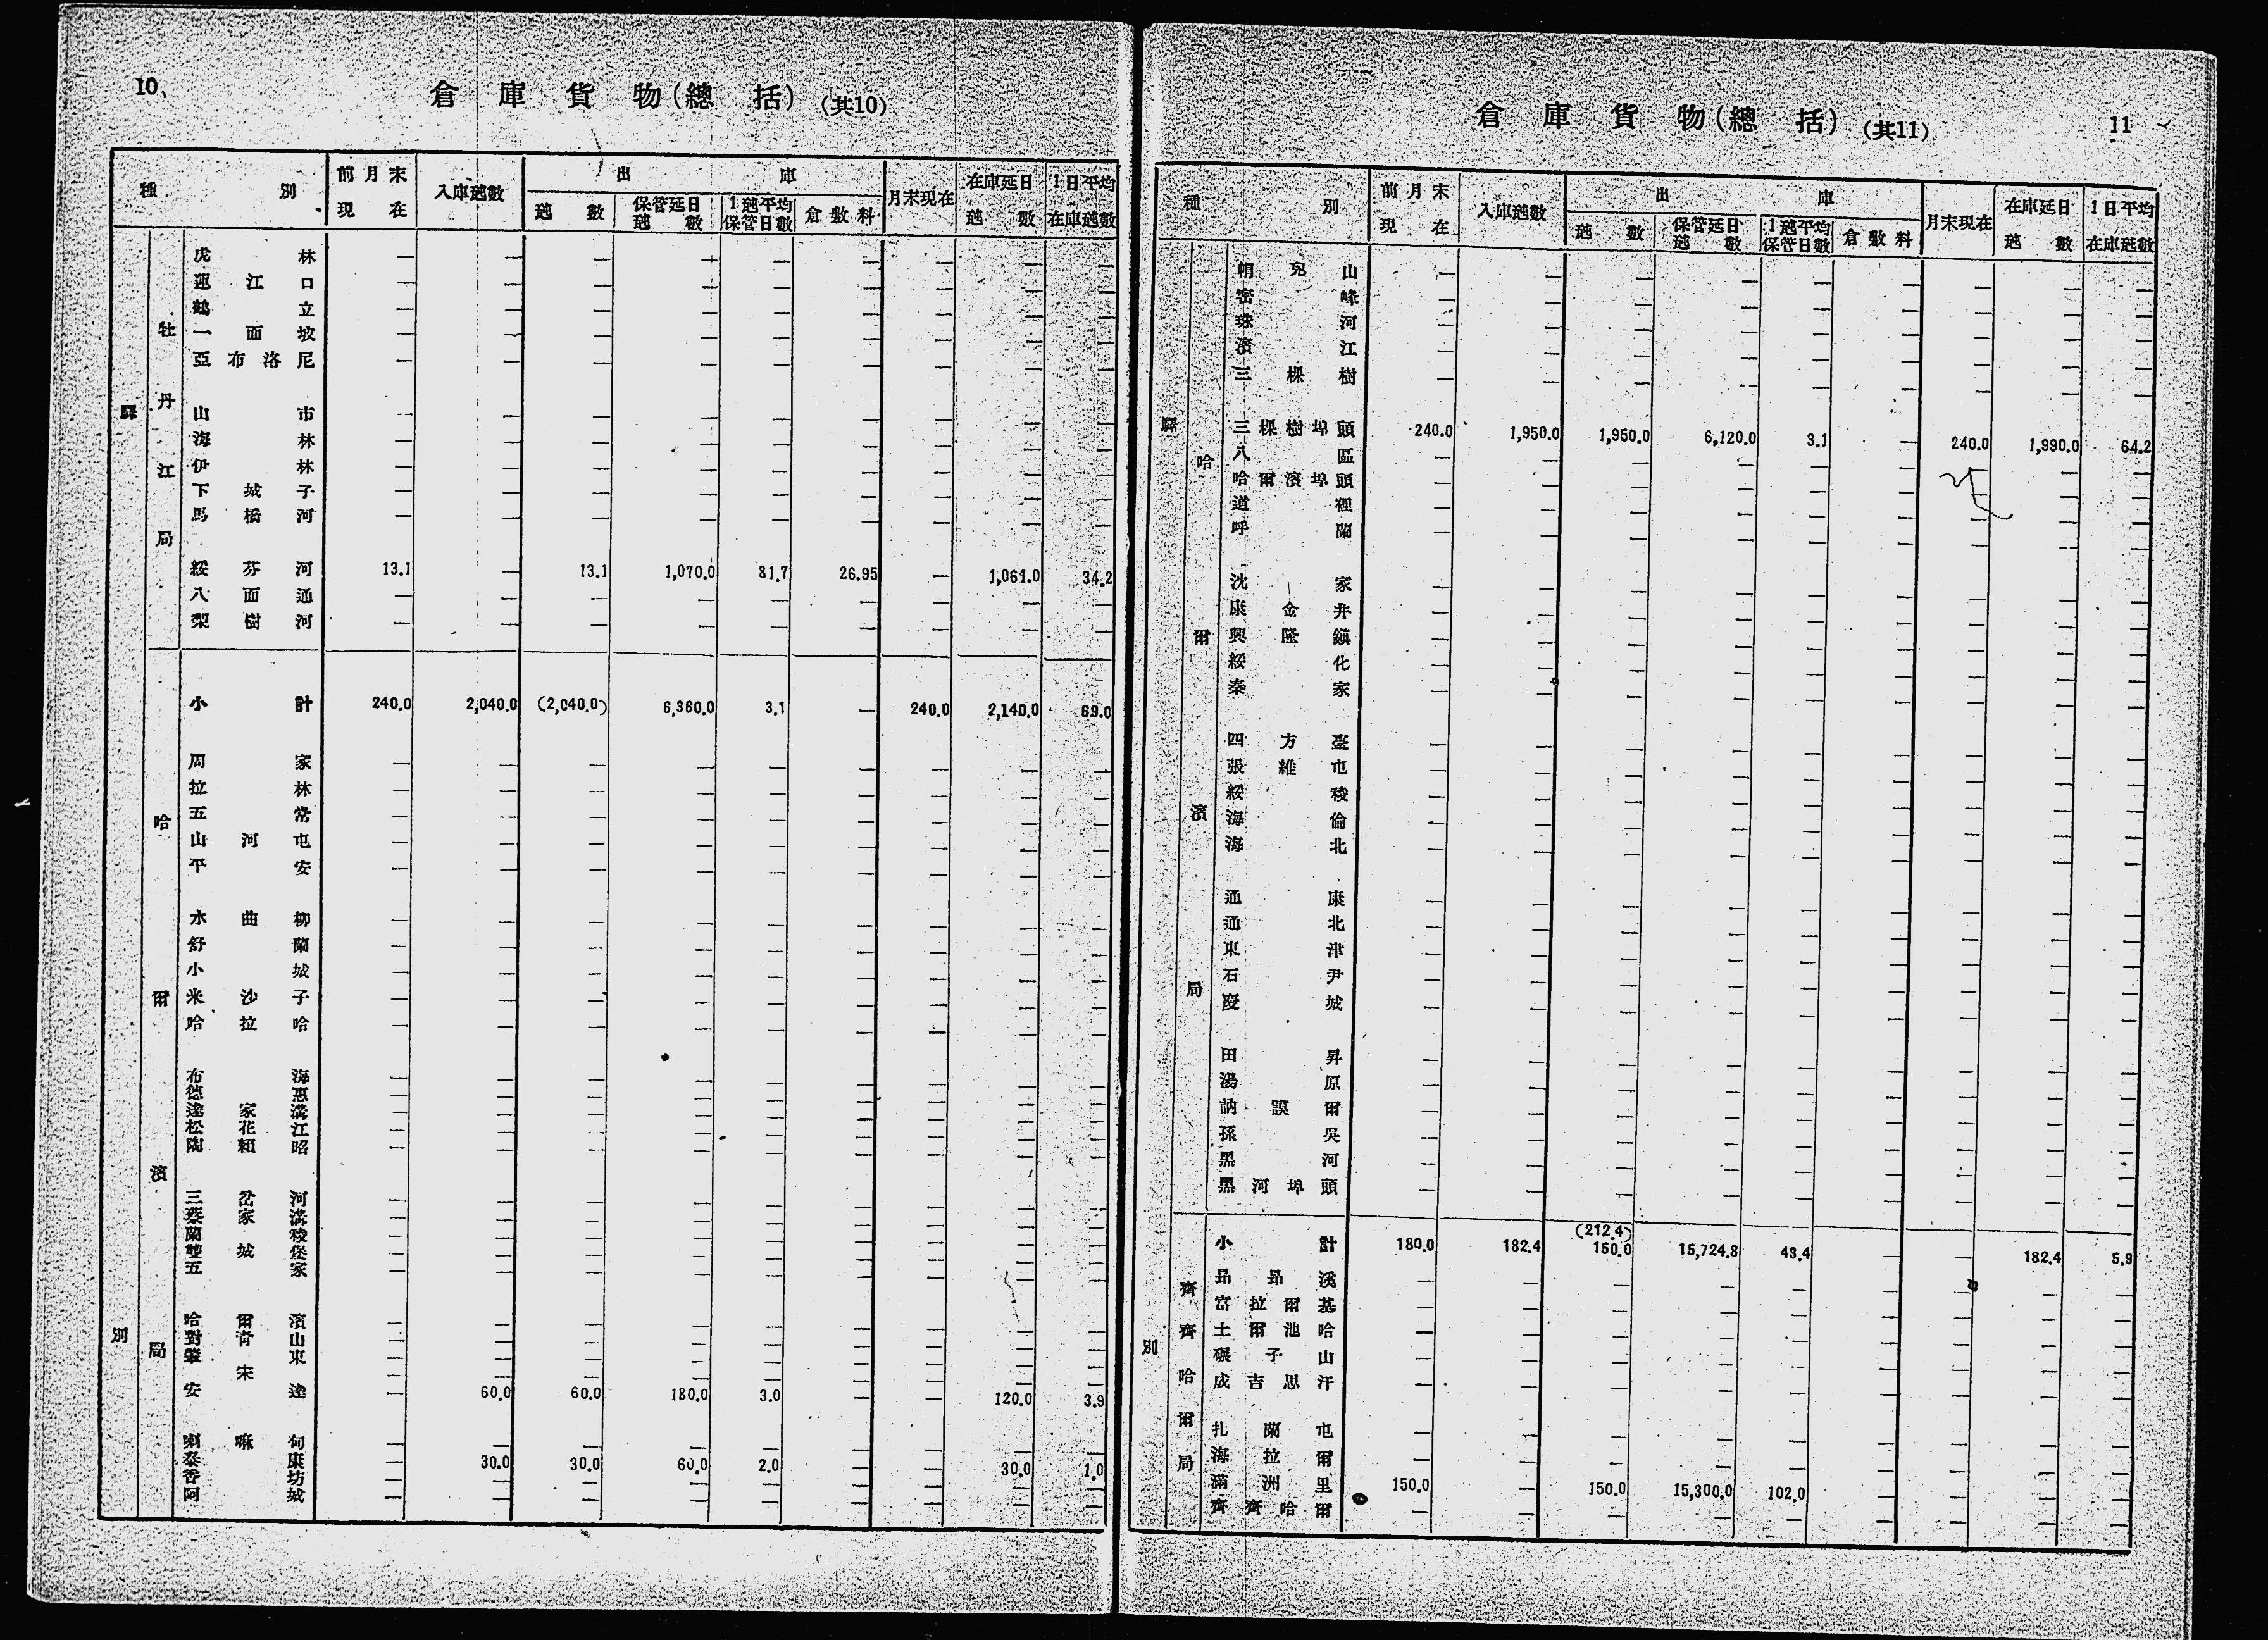 10
倉庫貨物(總括) (共10)
種別 前月末現在 入庫瓲數 出庫 月末現在 在庫延日瓲數 1日平均在庫瓲數
瓲數 保管延日瓲數 1瓲平均保管日數 倉敷料
驛別
牡丹江局
虎林 — — — — — — — — —
蓮江口 — — — — — — — — —
鶴立 — — — — — — — — —
一面坡 — — — — — — — — —
亞布洛尼 — — — — — — — — —
山市 — — — — — — — — —
海林 — — — — — — — — —
伊林 — — — — — — — — —
下城子 — — — — — — — — —
馬橋河 — — — — — — — — —
綏芬河 13.1 — 13.1 1,070.0 81.7 26.95 — 1,061.0 34.2
八面通 — — — — — — — — —
梨樹河 — — — — — — — — —
哈爾濱局
小計 240.0 2,040.0 (2,040.0) 6,360.0 3.1 — 240.0 2,140.0 69.0
周家 — — — — — — — — —
拉林 — — — — — — — — —
五常 — — — — — — — — —
山河屯 — — — — — — — — —
平安 — — — — — — — — —
水曲柳 — — — — — — — — —
舒蘭 — — — — — — — — —
小城 — — — — — — — — —
米沙子 — — — — — — — — —
哈拉哈 — — — — — — — — —
布海 — — — — — — — — —
德惠 — — — — — — — — —
達家溝 — — — — — — — — —
松花江 — — — — — — — — —
陶賴昭 — — — — — — — — —
三岔河 — — — — — — — — —
蔡家溝 — — — — — — — — —
蘭稜 — — — — — — — — —
雙城堡 — — — — — — — — —
五家 — — — — — — — — —
哈爾濱 — — — — — — — — —
對青山 — — — — — — — — —
肇東 — — — — — — — — —
宋 — — — — — — — — —
安達 — 60.0 60.0 180.0 3.0 — — 120.0 3.9
喇嘛甸 — — — — — — — — —
泰康 — 30.0 30.0 60.0 2.0 — — 30.0 1.0
香坊 — — — — — — — — —
阿城 — — — — — — — — —
倉庫貨物(總括) (共11)
11
種別 前月末現在 入庫瓲數 出庫 月末現在 在庫延日瓲數 1日平均在庫瓲數
瓲數 保管延日瓲數 1瓲平均保管日數 倉敷料
驛別
哈爾濱局
帽兒山 — — — — — — — — —
密峰 — — — — — — — — —
珠河 — — — — — — — — —
濱江 — — — — — — — — —
三棵樹 — — — — — — — — —
三棵樹埠頭 240.0 1,950.0 1,950.0 6,120.0 3.1 — 240.0 1,990.0 64.2
八區 — — — — — — — — —
哈爾濱埠頭 — — — — — — — — —
道裡 — — — — — — — — —
呼蘭 — — — — — — — — —
沈家 — — — — — — — — —
康金井 — — — — — — — — —
興隆鎮 — — — — — — — — —
綏化 — — — — — — — — —
秦家 — — — — — — — — —
四方臺 — — — — — — — — —
張維屯 — — — — — — — — —
綏稜 — — — — — — — — —
海倫 — — — — — — — — —
海北 — — — — — — — — —
通康 — — — — — — — — —
通北 — — — — — — — — —
東津 — — — — — — — — —
石尹 — — — — — — — — —
慶城 — — — — — — — — —
田昇 — — — — — — — — —
湯原 — — — — — — — — —
訥謨爾 — — — — — — — — —
孫吳 — — — — — — — — —
黑河 — — — — — — — — —
黑河埠頭 — — — — — — — — —
齊齊哈爾局
(212.4)
小計 180.0 182.4 150.0 15,724.8 43.4 — — 182.4 5.9
昂昂溪 — — — — — — — — —
富拉爾基 — — — — — — — — —
土爾池哈 — — — — — — — — —
碾子山 — — — — — — — — —
成吉思汗 — — — — — — — — —
扎蘭屯 — — — — — — — — —
海拉爾 — — — — — — — — —
滿洲里 150.0 — 150.0 15,300.0 102.0 — — — —
齊齊哈爾 — — — — — — — — —